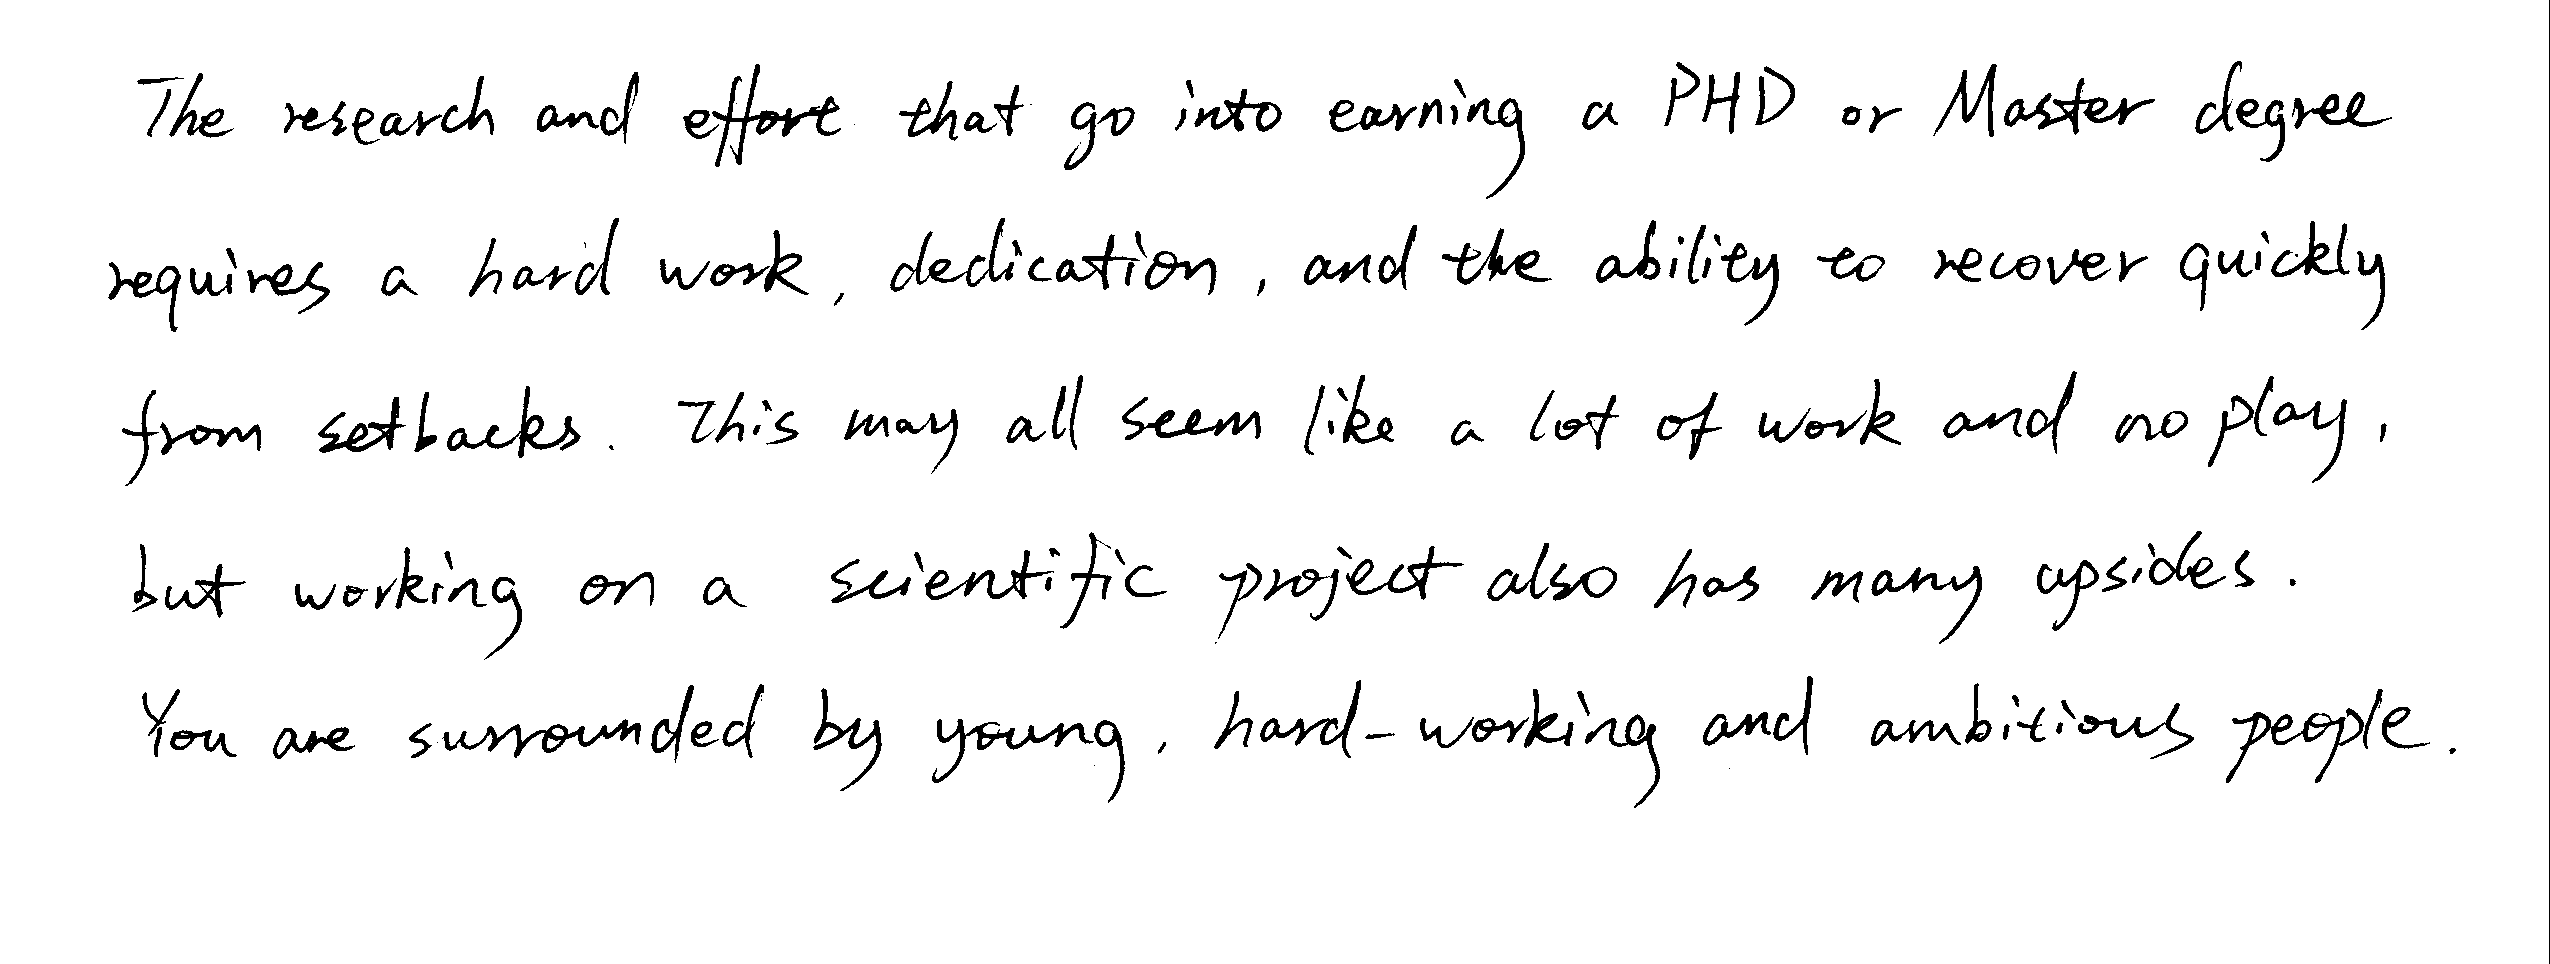 The research and effort that go into earning a PHD or Master degree
requires a hard work, dedication, and the ability to recover quickly
from setbacks. This may all seem like a lot of work and no play,
but working on a scientific project also has many upsides.
You are surrounded by young, hard-working and ambitious people.